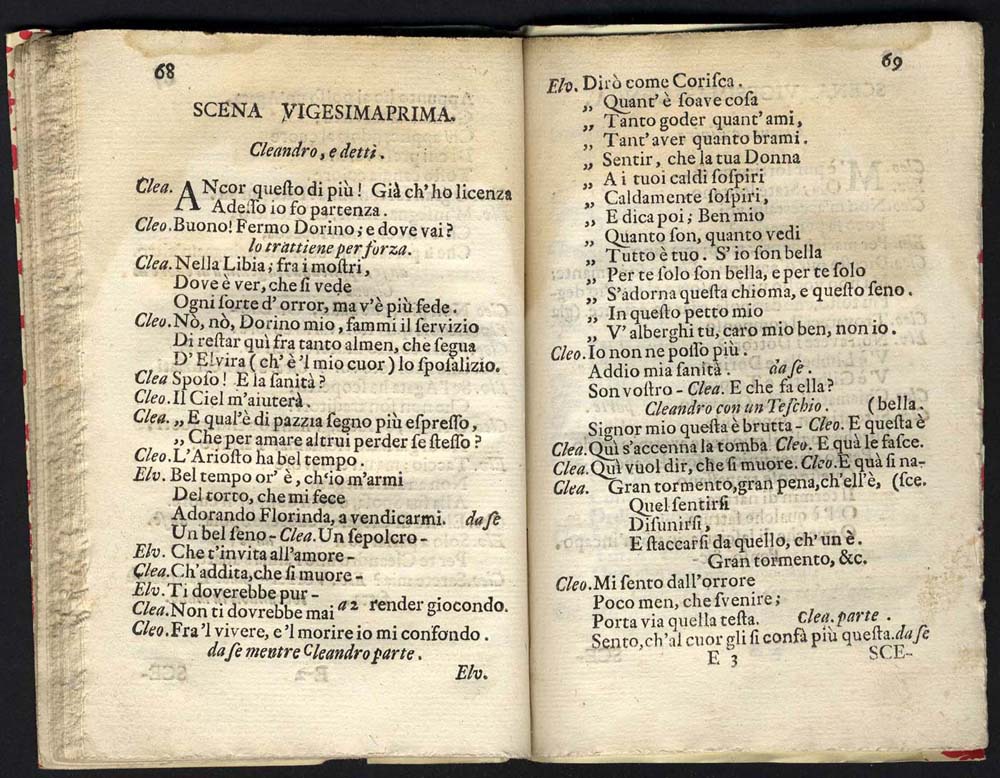 68
SCENA VIGESIMAPRIMA.
Cleandro, e detti.
Clea. ANcor queſto di più! Già ch' ho licenza
Adeſſo io fo partenza.
Cleo. Buono! Fermo Dorino; e dove vai?
lo trattiene per forza.
Clea. Nella Libia; fra i moſtri,
Dove è ver, che ſi vede
Ogni ſorte d' orror, ma v'è più fede.
Cleo. Nò, nò, Dorino mio, fammi il ſervizio
Di reſtar quì fra tanto almen, che ſegua
D' Elvira (ch' è 'l mio cuor) lo ſpoſalizio.
Clea Spoſo! E la ſanità?
Cleo. Il Ciel m'aiuterà.
Clea. „ E qual'è di pazzia ſegno più eſpreſſo,
„ Che per amare altrui perder ſe ſteſſo?
Cleo. L'Arioſto ha bel tempo.
Elv. Bel tempo or' è, ch'io m'armi
Del torto, che mi fece
Adorando Florinda, a vendicarmi. da ſe
Un bel ſeno - Clea. Un ſepolcro -
Elv. Che t'invita all'amore -
Clea. Ch'addita, che ſi muore -
Elv. Ti doverebbe pur -
Clea. Non ti dovrebbe mai a 2 render giocondo.
Cleo. Fra 'l vivere, e 'l morire io mi confondo.
da ſe mentre Cleandro parte.
Elv.
69
Elv. Dirò come Coriſca.
„ Quant' è ſoave coſa
„ Tanto goder quant' ami,
„ Tant' aver quanto brami.
„ Sentir, che la tua Donna
„ A i tuoi caldi ſoſpiri
„ Caldamente ſoſpiri,
„ E dica poi; Ben mio
„ Quanto ſon, quanto vedi
„ Tutto è tuo. S' io ſon bella
„ Per te ſolo ſon bella, e per te ſolo
„ S'adorna queſta chioma, e queſto ſeno.
„ In queſto petto mio
„ V' alberghi tu, caro mio ben, non io.
Cleo. Io non ne poſſo più.
Addio mia ſanità. da ſe.
Son voſtro - Clea. E che fa ella?
Cleandro con un Teſchio. (bella.
Signor mio queſta è brutta - Cleo. E queſta è
Clea. Quì s'accenna la tomba. Cleo. E quà le faſce.
Clea. Quì vuol dir, che ſi muore. Cleo. E quà ſi na-
Clea. Gran tormento, gran pena, ch'ell'è, (ſce.
Quel ſentirſi
Diſunirſi,
E ſtaccarſi da quello, ch' un è.
Gran tormento, &c.
Cleo. Mi ſento dall'orrore
Poco men, che ſvenire;
Porta via quella teſta. Clea. parte.
Sento, ch'al cuor gli ſi confà più queſta. da ſe
E 3 SCE-